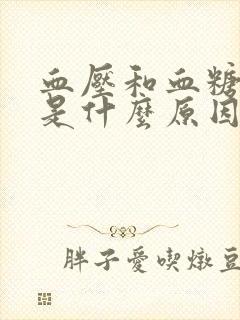 血壓和血糖
是什麼原因
胖子愛喫燉豆